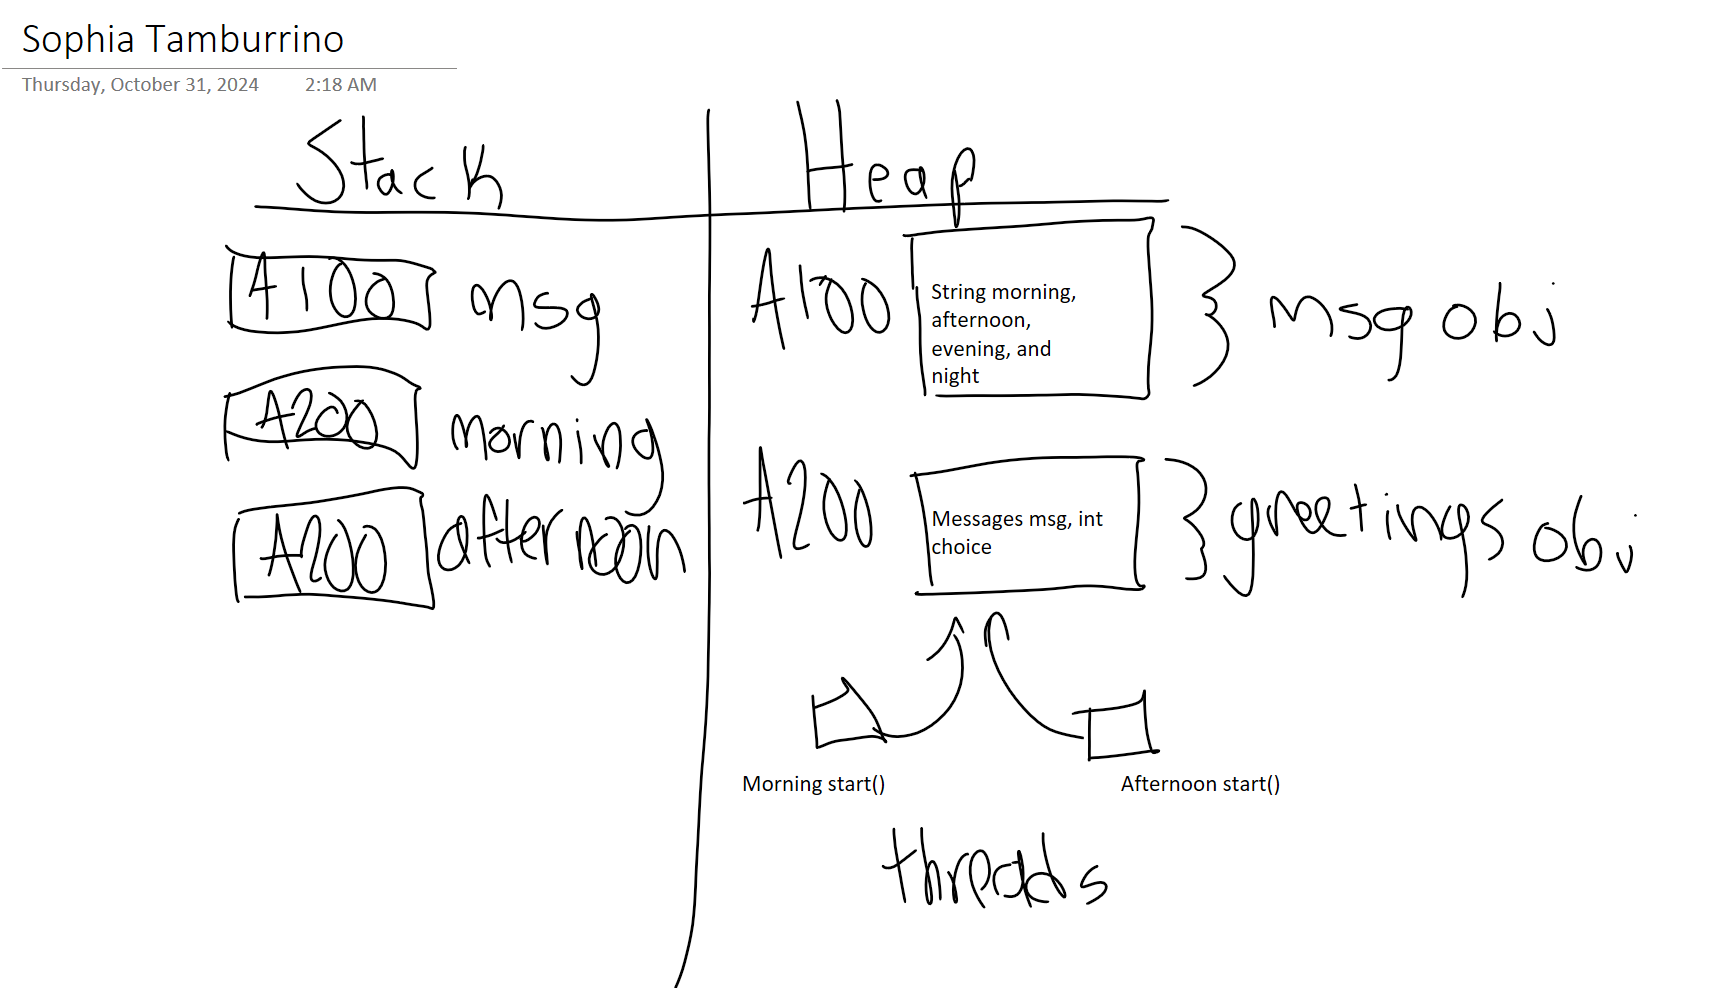 Sophia Tamburrino
Thursday, October 31, 2024 2:18 AM
Stack
Heap
A100 msg
A200 morning
A200 afternoon
A100
String morning,
afternoon,
evening, and
night
msg obj
A200
Messages msg, int
choice
greetings obj
Morning start()
Afternoon start()
threads